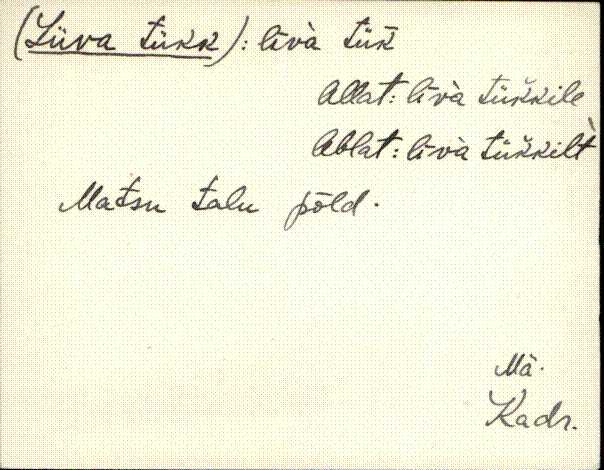 (Liiva tükk): līvà tük̄
Allat: līvà tük̆kile
Ablat: līvà tük̆kilt̀
Matsu talu põld.
Mä.
Kadr.